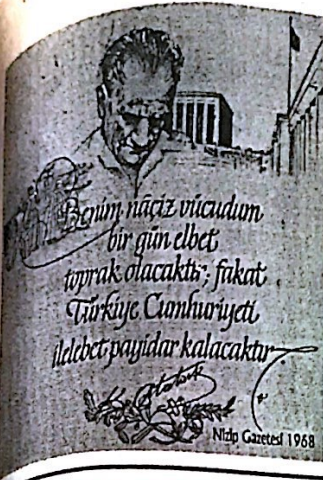 Benim nâçiz vücudum
bir gün elbet
toprak olacaktır; fakat
Türkiye Cumhuriyeti
ilelebet payidar kalacaktır
K. Atatürk
Nizip Gazetesi 1968